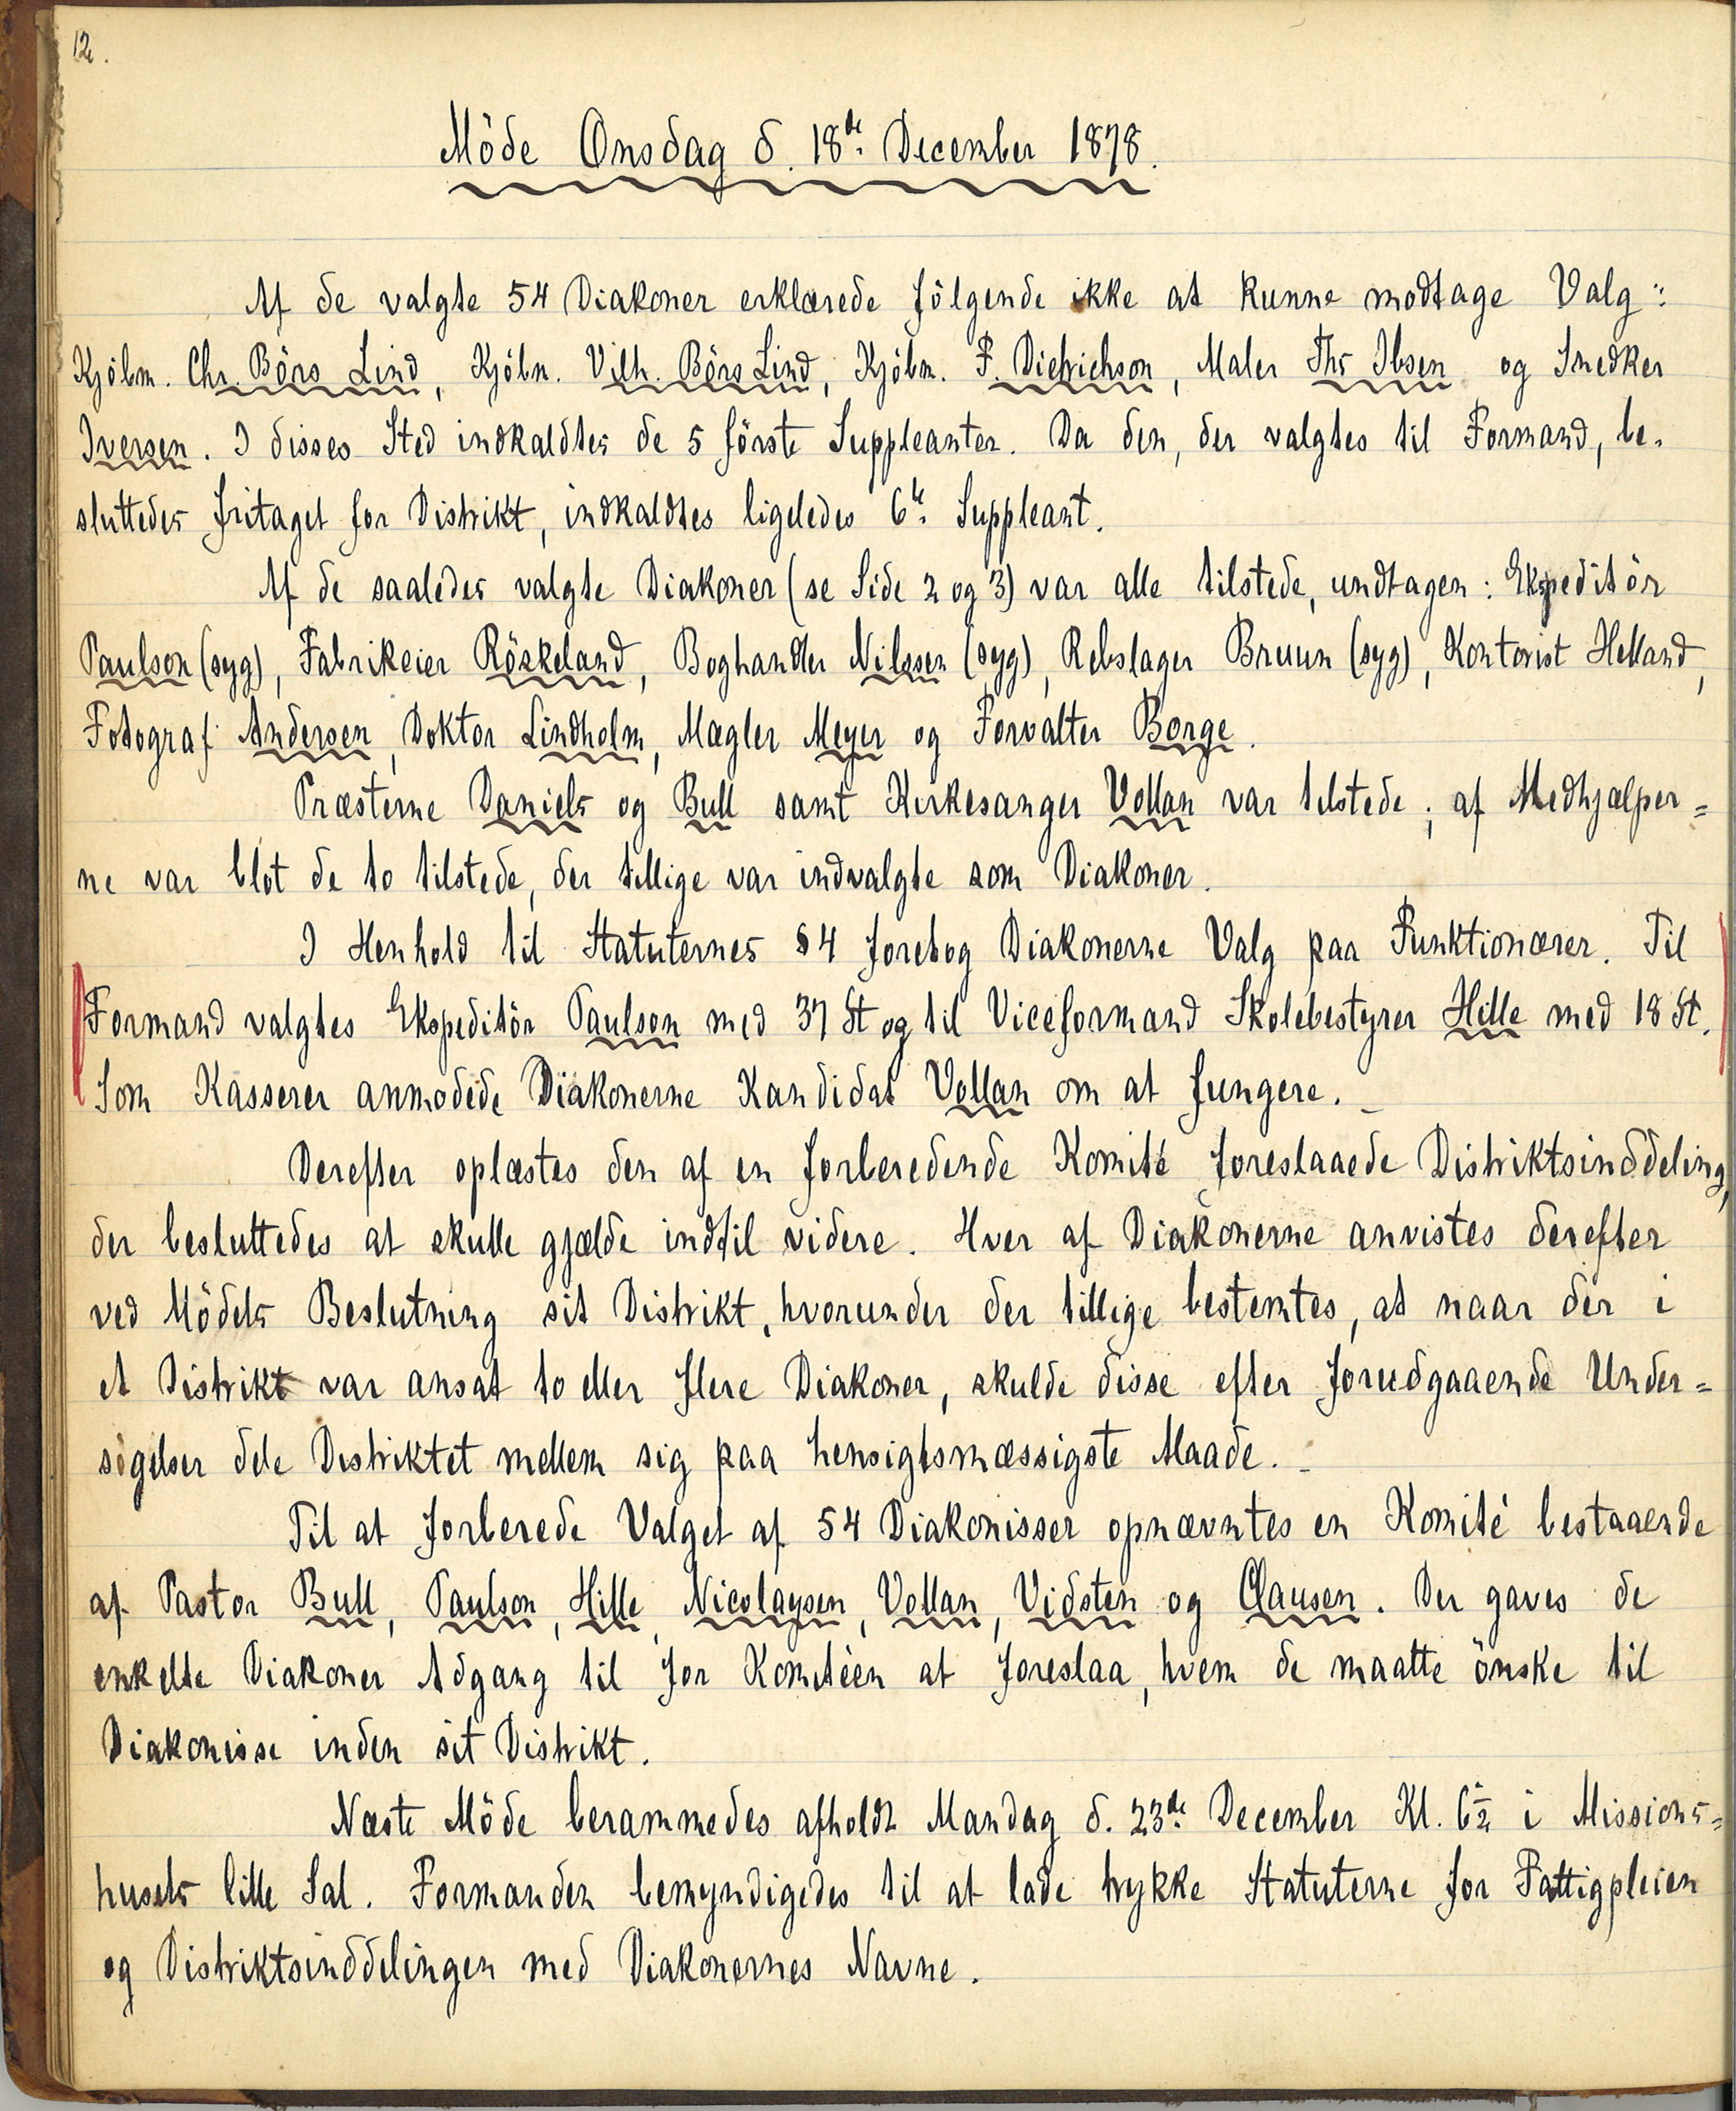 12.
Möde Onsdag d. 18de December 1878.
Af de valgte 54 Diakoner erklærede fölgende ikke at kunne modtage Valg:
Kjöbm. Chr. Börs Lind, Kjöbm. Vilh. Börs Lind, Kjöbm. F. Dietrichson, Maler Thr Ibsen og Snedker
Iversen. I disses Sted indkaldtes de 5 förste Suppleanter. Da den, der valgtes til Formand, be-
sluttedes fritaget for Distrikt, indkaldtes ligeledes 6te Suppleant.
Af de saaledes valgte Diakoner (se Side 2 og 3) var alle tilstede, undtagen: Ekspeditör
Paulson (syg), Fabrikeier Röskeland, Boghandler Nilssen (syg), Rebslager Bruun (syg), Kontorist Helland,
Fotograf Andersen, Doktor Lindholm, Mægler Meyer og Forvalter Borge.
Præsterne Daniels og Bull samt Kirkesanger Vollan var tilstede; af Medhjælper=
ne var blot de to tilstede, der tillige var indvalgte som Diakoner.
I Henhold til Statuternes § 4 foretog Diakonerne Valg paa Funktionærer. Til
Formand valgtes Ekspeditör Paulson med 37 St og til Viceformand Skolebestyrer Hille med 18 St.
Som Kasserer anmodede Diakonerne Kandidat Vollan om at fungere. _
Derefter oplæstes den af en forberedende Komité foreslaaede Distriktsinddeling,
der besluttedes at skulle gjælde indtil videre. Hver af Diakonerne anvistes derefter
ved Mödets Beslutning sit Distrikt, hvorunder der tillige bestemtes, at naar der i
et Distrikt var ansat to eller flere Diakoner, skulde disse efter forudgaaende Under=
sögelser dele Distriktet mellem sig paa hensigtsmæssigste Maade. _
Til at forberede Valget af 54 Diakonisser opnævntes en Komité bestaaende
af Pastor Bull, Paulson, Hille, Nicolaysen, Vollan, Vidsten og Clausen. Der gaves de
enkelte Diakoner Adgang til for Komitéen at foreslaa, hvem de maatte önske til
Diakonisse inden sit Distrikt.
Næste Möde berammedes afholdt Mandag d. 23de December Kl. 6½ i Missions=
husets lille Sal. Formanden bemyndigedes til at lade trykke Statuterne for Fattigpleien
og Distriktsinddelingen med Diakonernes Navne.